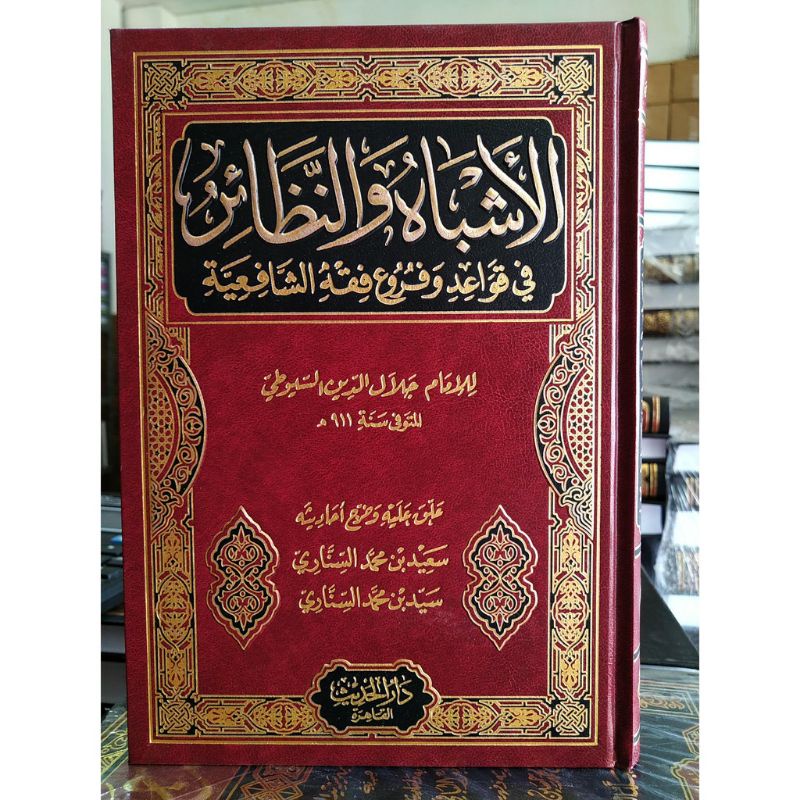 الأشباه والنظائر
في قواعد وفروع فقه الشافعية
للإمام جلال الدين السيوطي
المتوفى سنة ٩١١ هـ
علق عليه وخرج أحاديثه
سعيد بن محمد السناري
سيد بن محمد السناري
دار الحديث
القاهرة